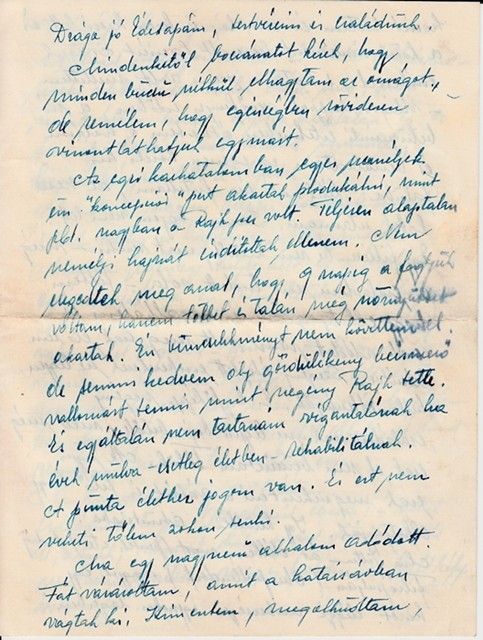 Drága jó Édesapám, testvéreim és családunk.
Mindenkitől bocsánatot kérek, hogy
minden búcsú nélkül elhagytam az országot,
de remélem, hogy egészségben rövidesen
viszontláthatjuk egymást.
Az egri kórházban egyes személyek
"koncepciós" pert akartak produkálni, mint
pld. nagyban a Rajk per volt. Teljesen alaptalan
személyi hajszát indítottak ellenem. Nem
elégedtek meg azzal, hogy 9 napig a
voltam, hanem többet és talán még
akartak. Én bűncselekményt nem követtem el.
de semmi kedvem oly gördülékeny beismerő
vallomást tenni mint szegény Rajk tette.
És egyáltalán nem tartanám vigasztalónak ha
évek múlva - esetleg életben - rehabilitálnak.
A puszta élethez jogom van. És ezt nem
veheti tőlem zokon senki.
Ma egy nagyszerű alkalom adódott.
Fát vásároltam, amit a határsávban
vágtak ki. Kimentem, megalkudtam,